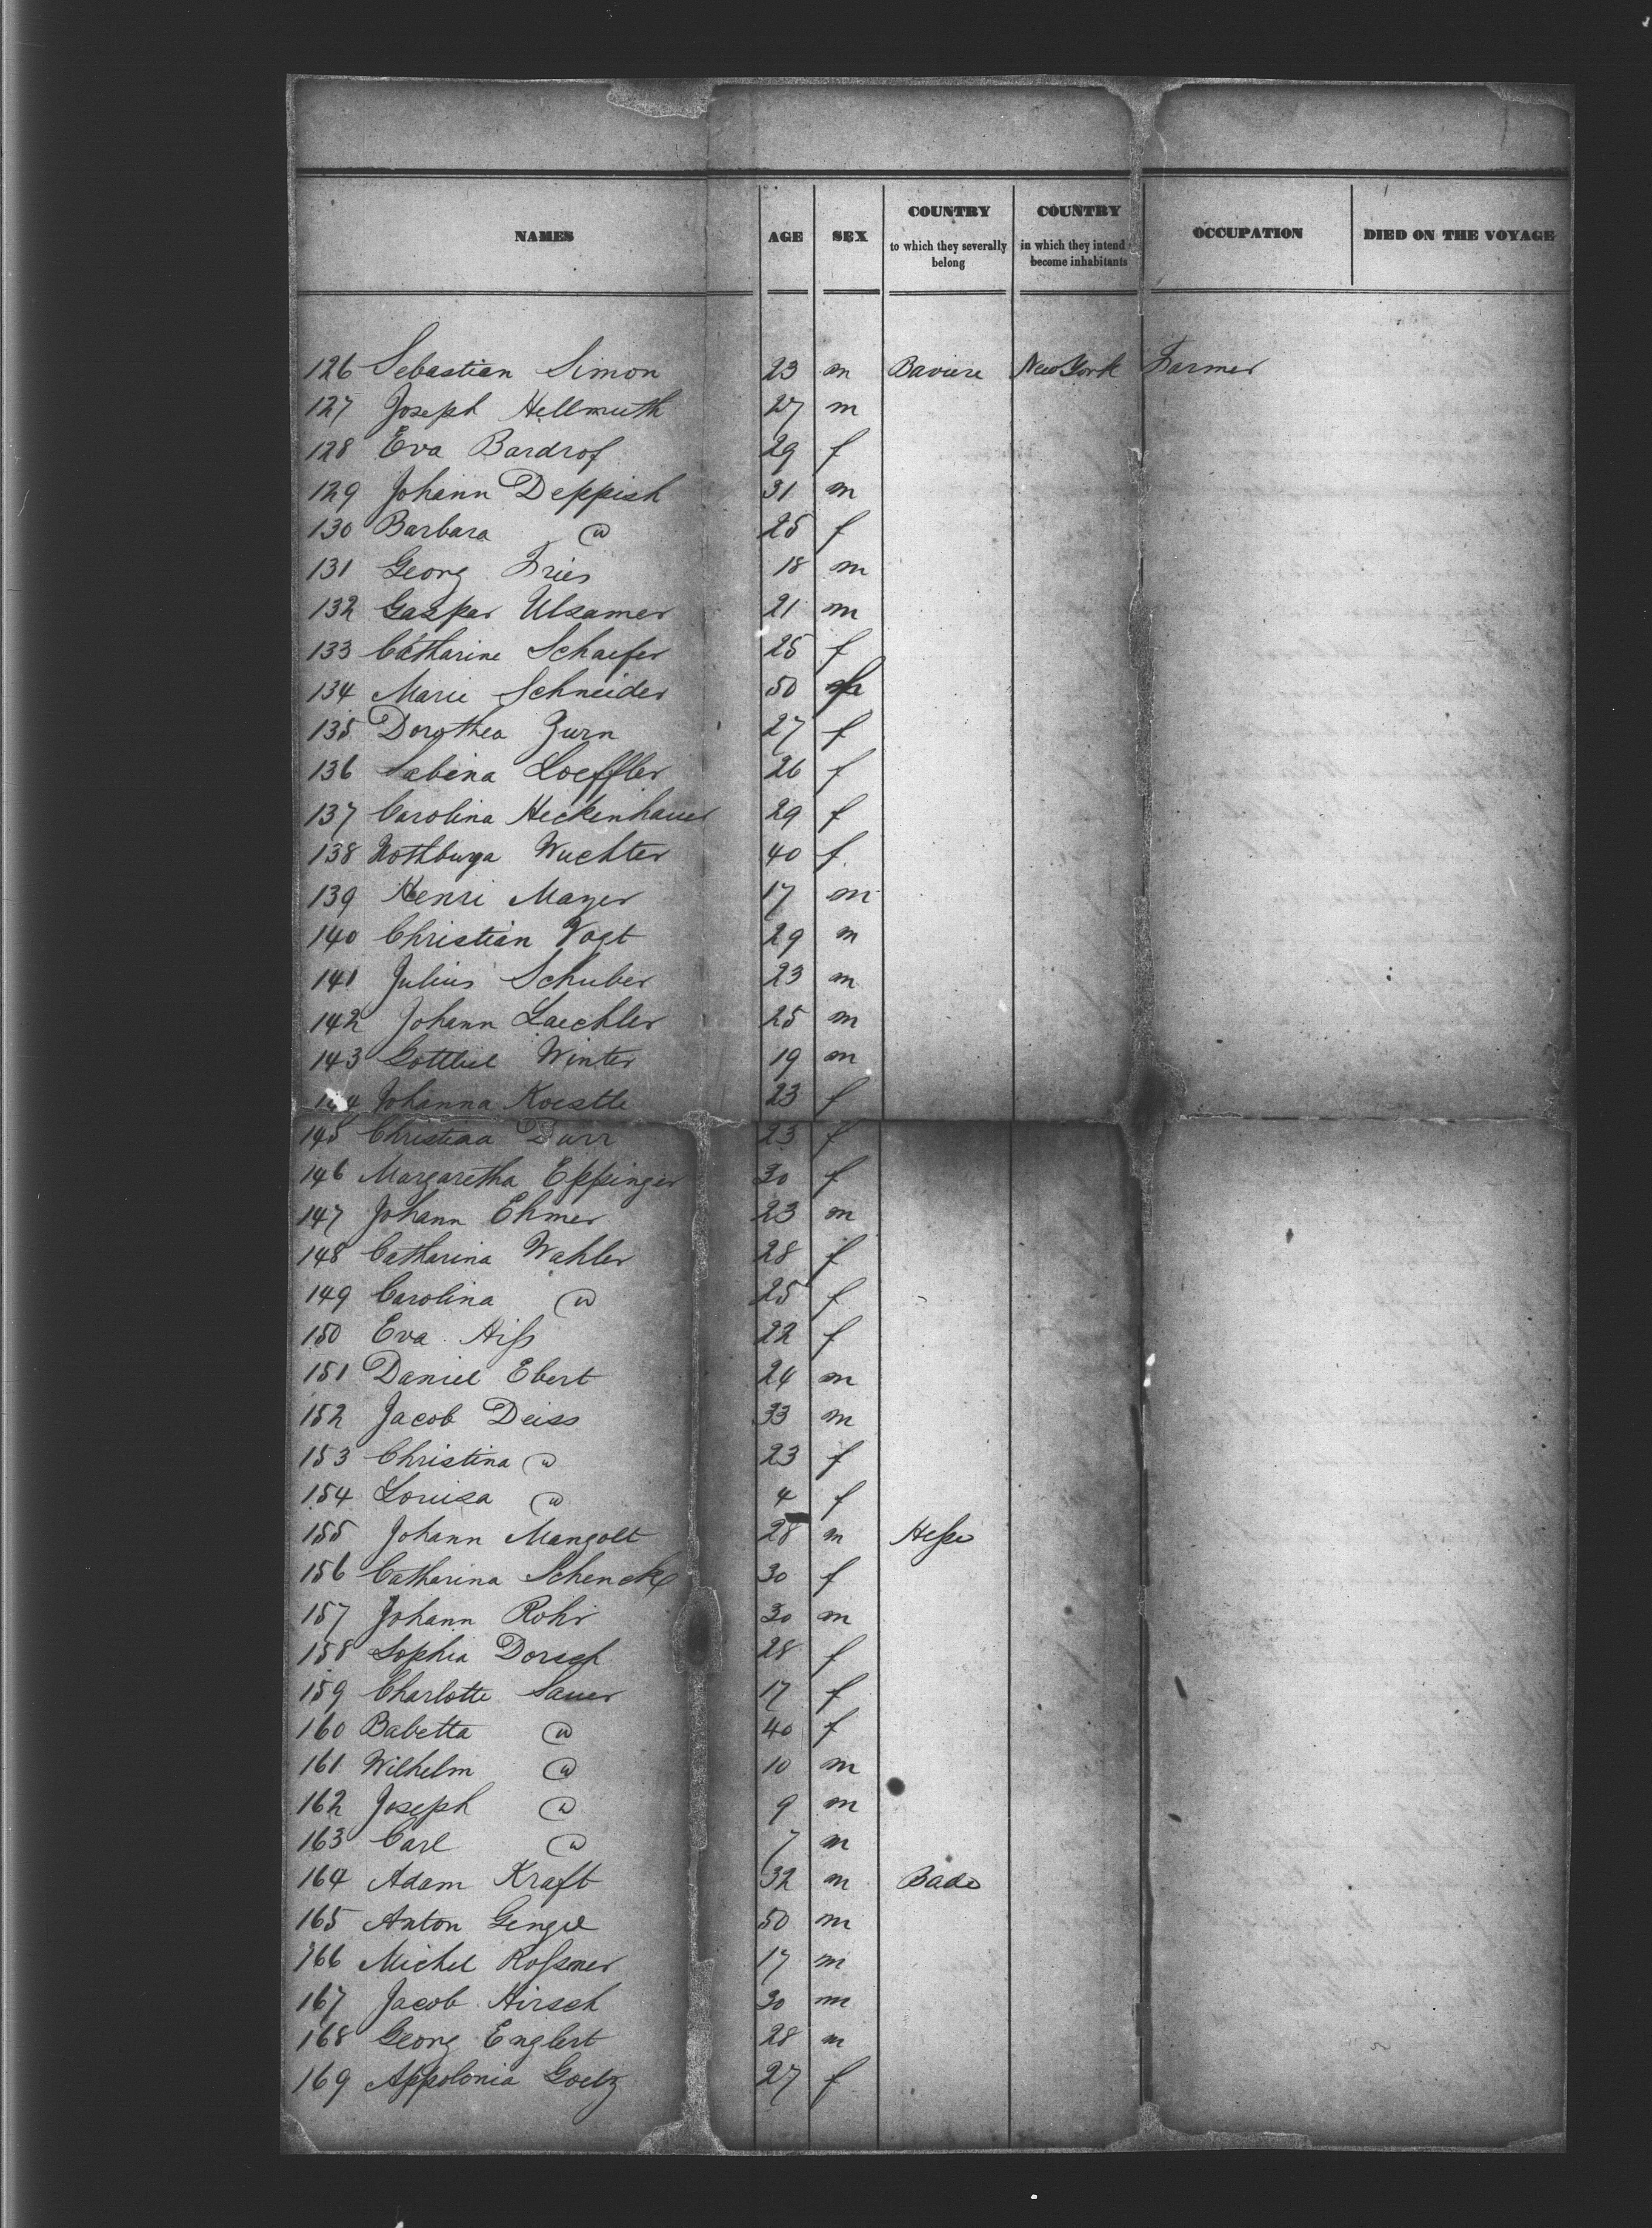 NAMES AGE SEX COUNTRY to which they severally belong COUNTRY in which they intend become inhabitants OCCUPATION DIED ON THE VOYAGE
126 Sebastian Simon 23 m Baviere New York Farmer
127 Joseph Hellmuth 27 m
128 Eva Bardrof 29 f
129 Johann Deppish 31 m
130 Barbara @ 25 f
131 Georg Fries 18 m
132 Gaspar Ulsamer 21 m
133 Catharine Schaefer 25 f
134 Marie Schneider 50 f
135 Dorothea Zurn 27 f
136 Sabina Loeffler 26 f
137 Carolina Heckenhauer 29 f
138 Nothburga Wuchter 40 f
139 Henri Mayer 17 m
140 Christian Vogt 29 m
141 Julius Schuber 23 m
142 Johann Laechler 25 m
143 Gottlieb Winter 19 m
144 Johanna Koestle 23 f
145 Christina Durr 23 f
146 Margaretha Eppinger 30 f
147 Johann Ehmer 23 m
148 Catharina Wahler 28 f
149 Carolina @ 25 f
150 Eva Hiſs 22 f
151 Daniel Ebert 24 m
152 Jacob Deiss 33 m
153 Christina @ 23 f
154 Louisa @ 4 f
155 Johann Mangolt 28 m Heſse
156 Catharina Schenck 30 f
157 Johann Rohr 30 m
158 Sophia Dorsch 28 f
159 Charlotte Sauer 17 f
160 Babetta @ 40 f
161 Wilhelm @ 10 m
162 Joseph @ 9 m
163 Carl @ 7 m
164 Adam Kraft 32 m Bade
165 Anton Gengel 50 m
166 Michel Roſsmer 17 m
167 Jacob Hirsch 30 m
168 Georg Englert 28 m
169 Appolonia Goetz 27 f